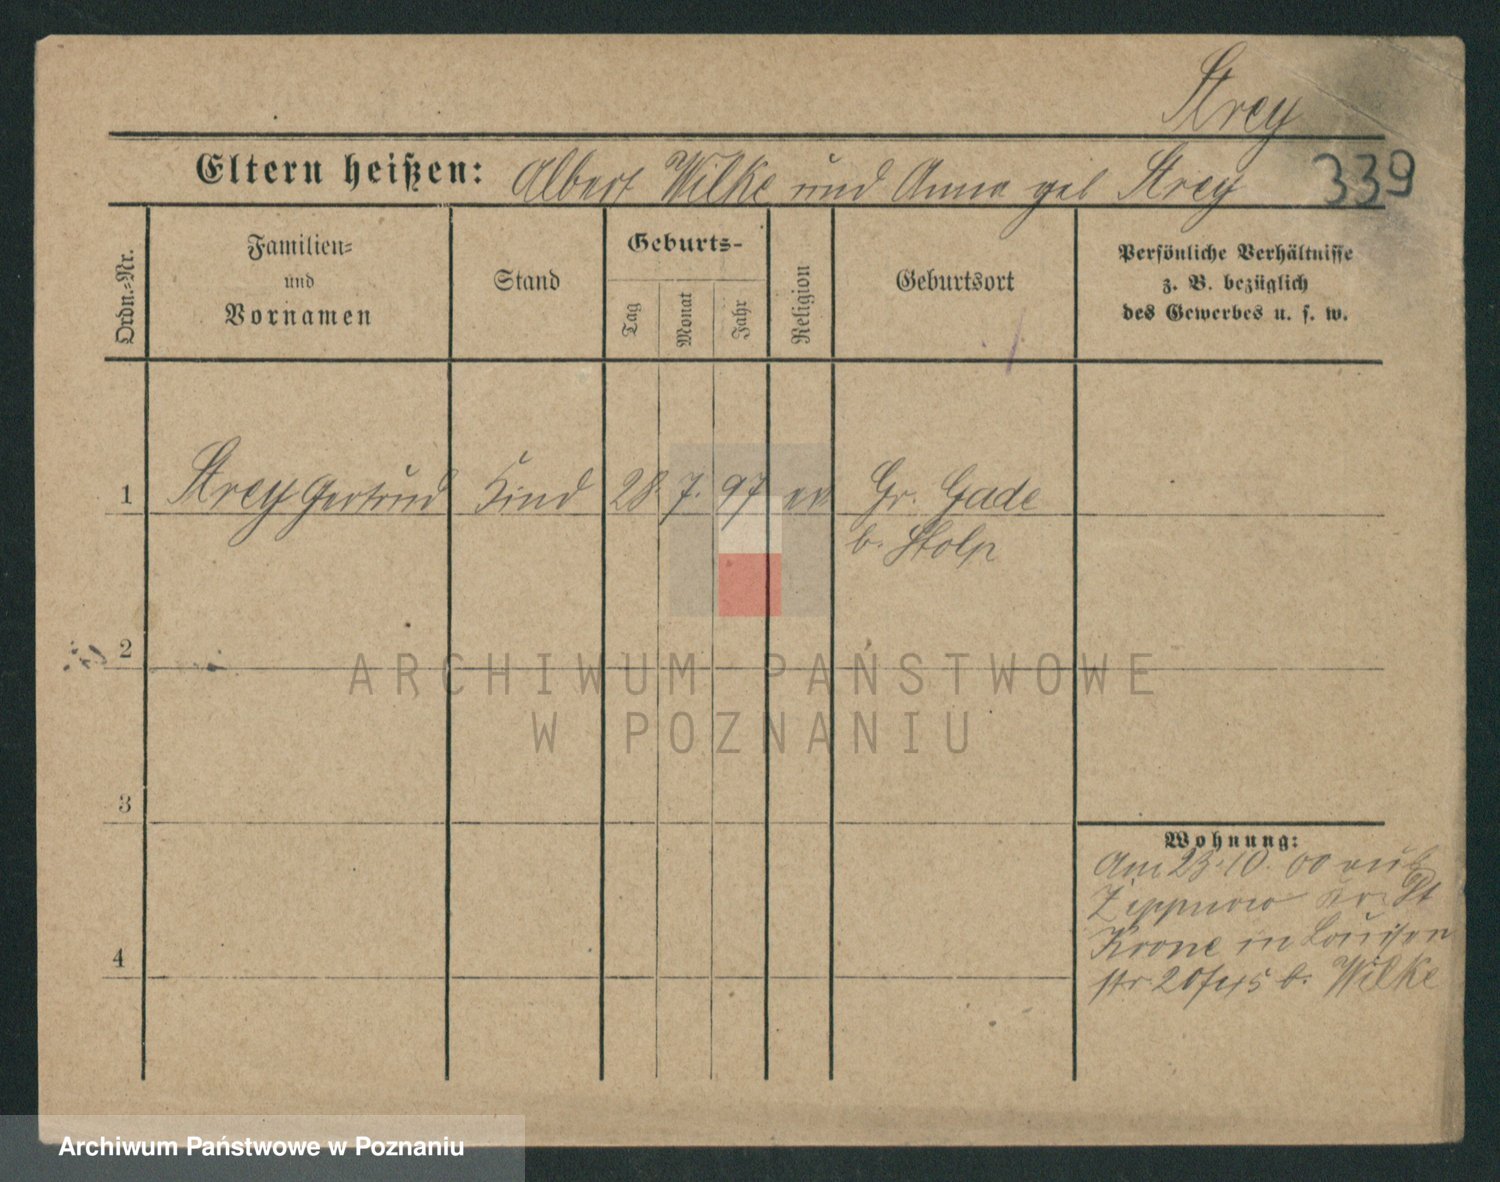 Strey
Eltern heißen: Albert Wilke und Anna geb Strey 339
Ordn.-Nr.
Familien-
und
Vornamen
Stand
Geburts-
Tag
Monat
Jahr
Religion
Geburtsort
Persönliche Verhältnisse
z. B. bezüglich
des Gewerbes u. s. w.
1 Strey Gertrud Kind 28. 7. 97 ev Gr. Gade
b. Stolp
2
3
4
Wohnung:
Am 23.10.00 aus
Zippnow Kr. Dt
Krone in Louisen
str 20 b. Wilke
ARCHIWUM PAŃSTWOWE
W POZNANIU
Archiwum Państwowe w Poznaniu